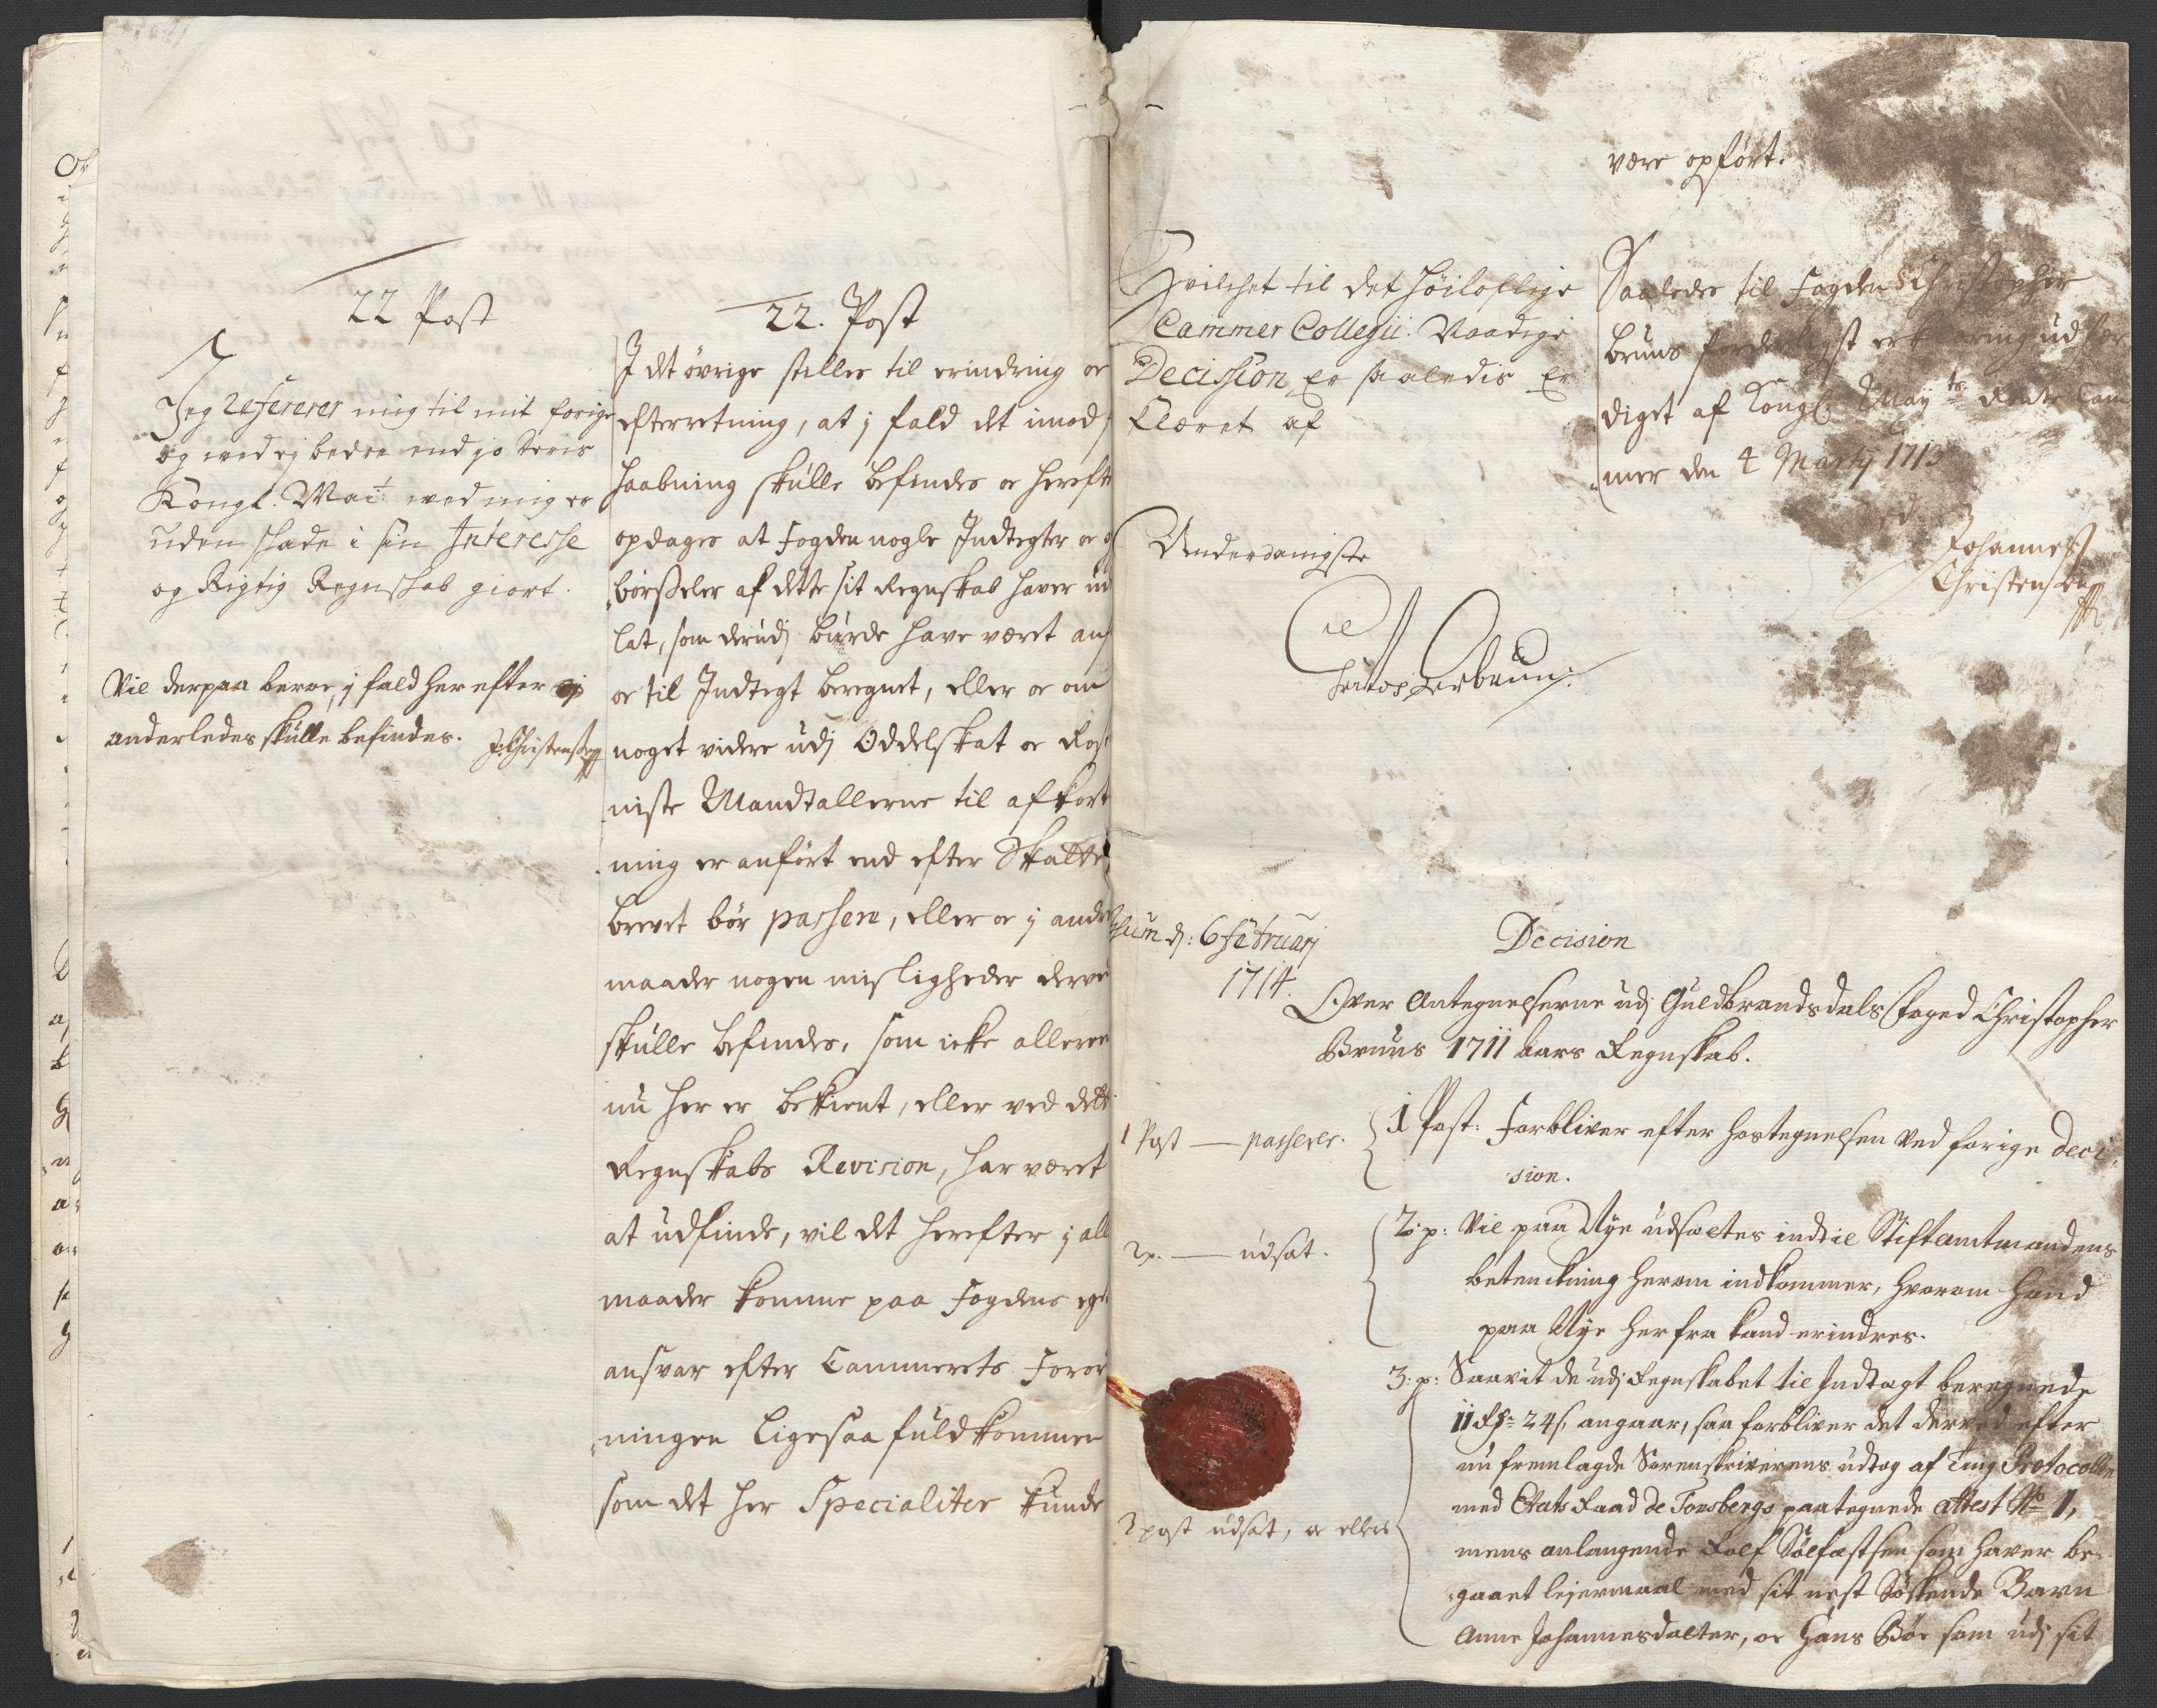 22 Post
Jeg refererer mig til mit forige
og wed ej bedre end jo deris
Kongl. Mai.t wed mig er
uden skade i sin Interesse
og Rigtig Regnskab giort.
Vil derpaa beroe, j fald her efter ej
anderledes skulle befindes.
JChristensen
22. Post
J det övrige stilles til erindring oc
efterretning, at j fald det imod
haabning skulle befindes oc hereft
opdages at Fogden nogle Indtegter oc
börseler af dette sit Regnskab haver ud
lat, som derudj burde have veret anf
oc til Indtegt beregnet, eller oc om
noget videre udj Oddelskat oc Ros
niste Mandtallerne til afkort
ning er anfört end efter Skatte
brevet bör passere, eller oc j andre
maader nogen misligheder derve
skulle befindes, som icke allerede
nu her er bekient, eller ved dette
Regnskabs Revision, har veret
at udfinde, vil det herefter j all
maader komme paa Fogdens egen
ansvar efter Cammerets Foror
ningen ligesaa fuldkommen
som det her Specialiter kunde
være opfört.
Hvilchet til det höiloflige
Cammer Collegii Naadige
Decission Er saaledis Er
Klæret af
Underdanigste
Christopher Bruun
Saaledes til Fogden Christopher
Bruns forderligst erklæring udfær
diget af Kongl. May.ts Rente Cam
mer den 4 Martij 1713
Johannes
Christensen
d: 6 februarj
1714.
Decision
Over Antegnelserne udj Guldbrandsdals Foged Christopher
Bruuns 1711 aars Regnskab.
1 Post — passerer.
1 Post: Forbliver efter hostegnelsen ved forige deci-
sion.
2 p. — udsat.
2: p: Vil paa Nye udsættes indtil Stiftamtmandens
betenckning herom indkommer, hvorom hand
paa Nye herfra kand erindres.
3: p: Saavit de udj Regnskabet til Indtægt beregnede
11 Rd 24 s. angaar, saa forbliver det derved efter
nu fremlagde Sorenskriverens udtog af Ting Protocollen
med Etats Raad de Tonsbergs paategnede attest No 1,
mens anlangende Rolf Sölfæstsen som haver be-
gaaet lejermaal med sit nest Söskende Barn
Anne Johannesdatter, oc Hans Böe som udj sit
3 post udsat, oc ellers